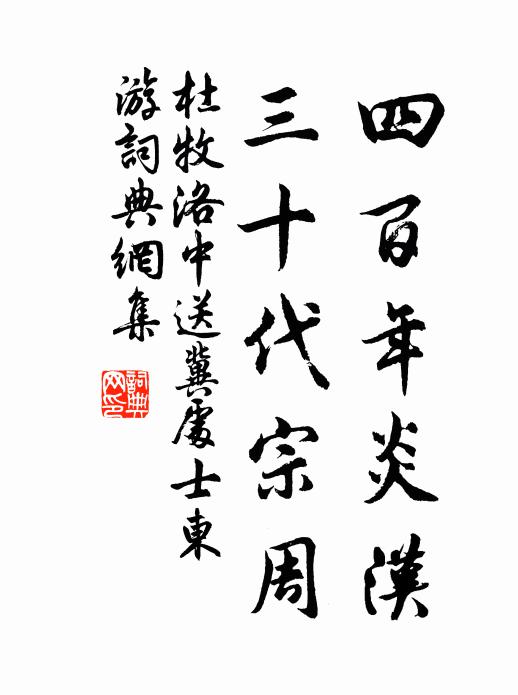 四百年炎漢
三十代宗周
杜牧洛中送冀處士東
游詞典網集
詞典
网印